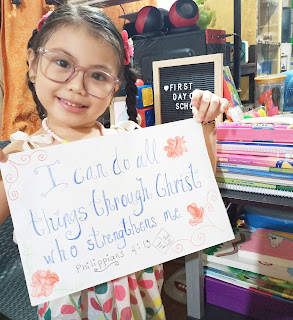 FIRST
DAY OF
SCHO
I can do all
things through Christ
who strengthens me
Philippians 4:13